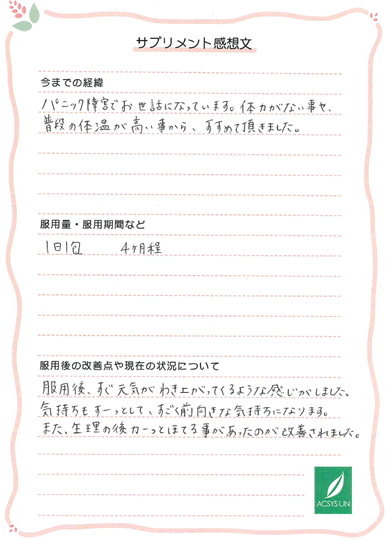 サプリメント感想文
今までの経緯
パニック障害でお世話になっています。体力がない事や、
普段の体温が高い事から、すすめて頂きました。
服用量・服用期間など
1日1包　4ヶ月程
服用後の改善点や現在の状況について
服用後、すぐ元気がわき上がってくるような感じがしました。
気持ちもすーっとして、すごく前向きな気持ちになります。
また、生理の後カーっとほてる事があったのが改善されました。
ACSYSUN